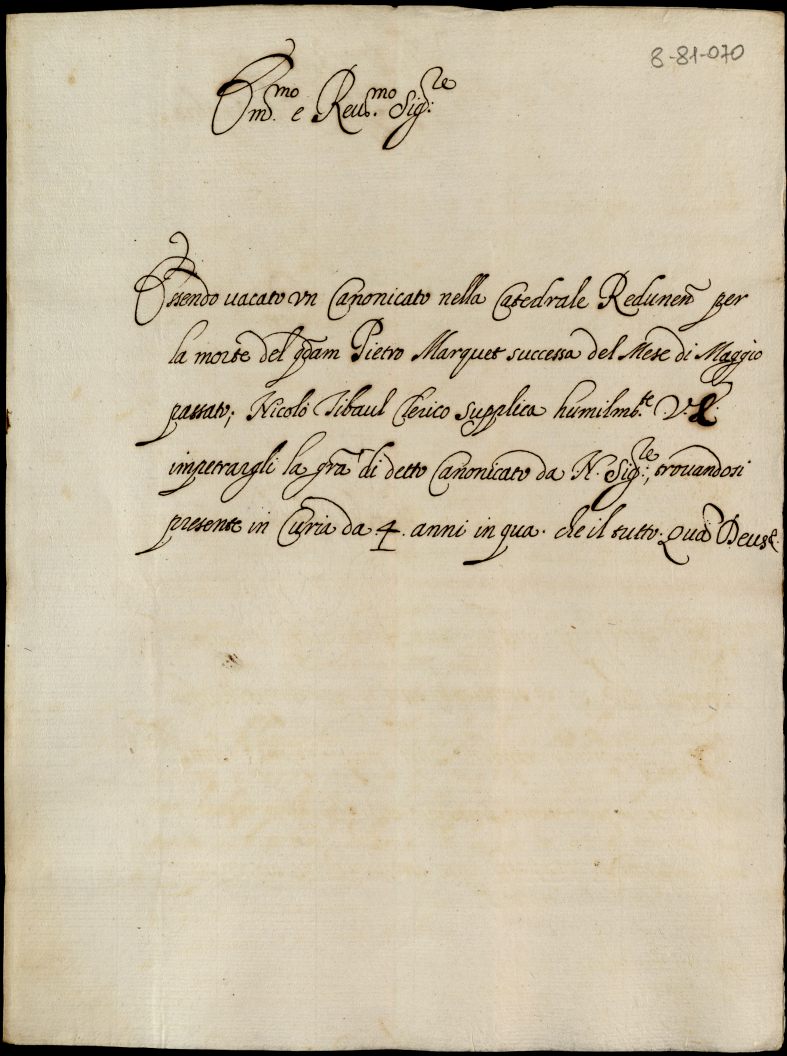 8-81-070
Em.mo e Reu.mo Sig.re
Essendo uacato vn Canonicato nella Catedrale Redunen per
la morte del qdam Pietro Marquet successa del Mese di Maggio
passato; Nicolò Tibaul Clerico supplica humilmte V. E.
impetrargli la gra di detto Canonicato da N. Sig.re, trouandosi
presente in Curia da 4. anni in qua. che il tutto. Qua Deus &.